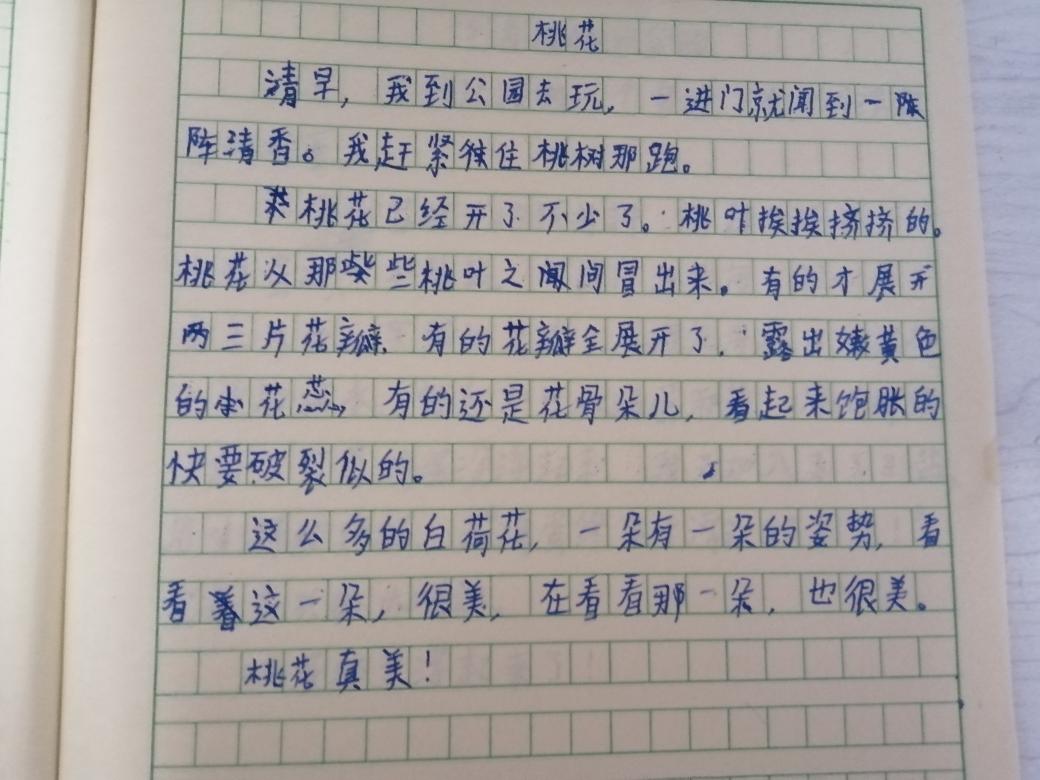 桃花
清早，我到公园去玩，一进门就闻到一阵
阵清香。我赶紧往住桃树那跑。
桃花已经开了不少了。桃叶挨挨挤挤的。
桃花从那些桃叶之间冒出来。有的才展开
两三片花瓣、有的花瓣全展开了，露出嫩黄色
的小花蕊，有的还是花骨朵儿，看起来饱胀的
快要破裂似的。
这么多的白荷花，一朵有一朵的姿势，看
看这一朵，很美，在看看那一朵，也很美。
桃花真美！